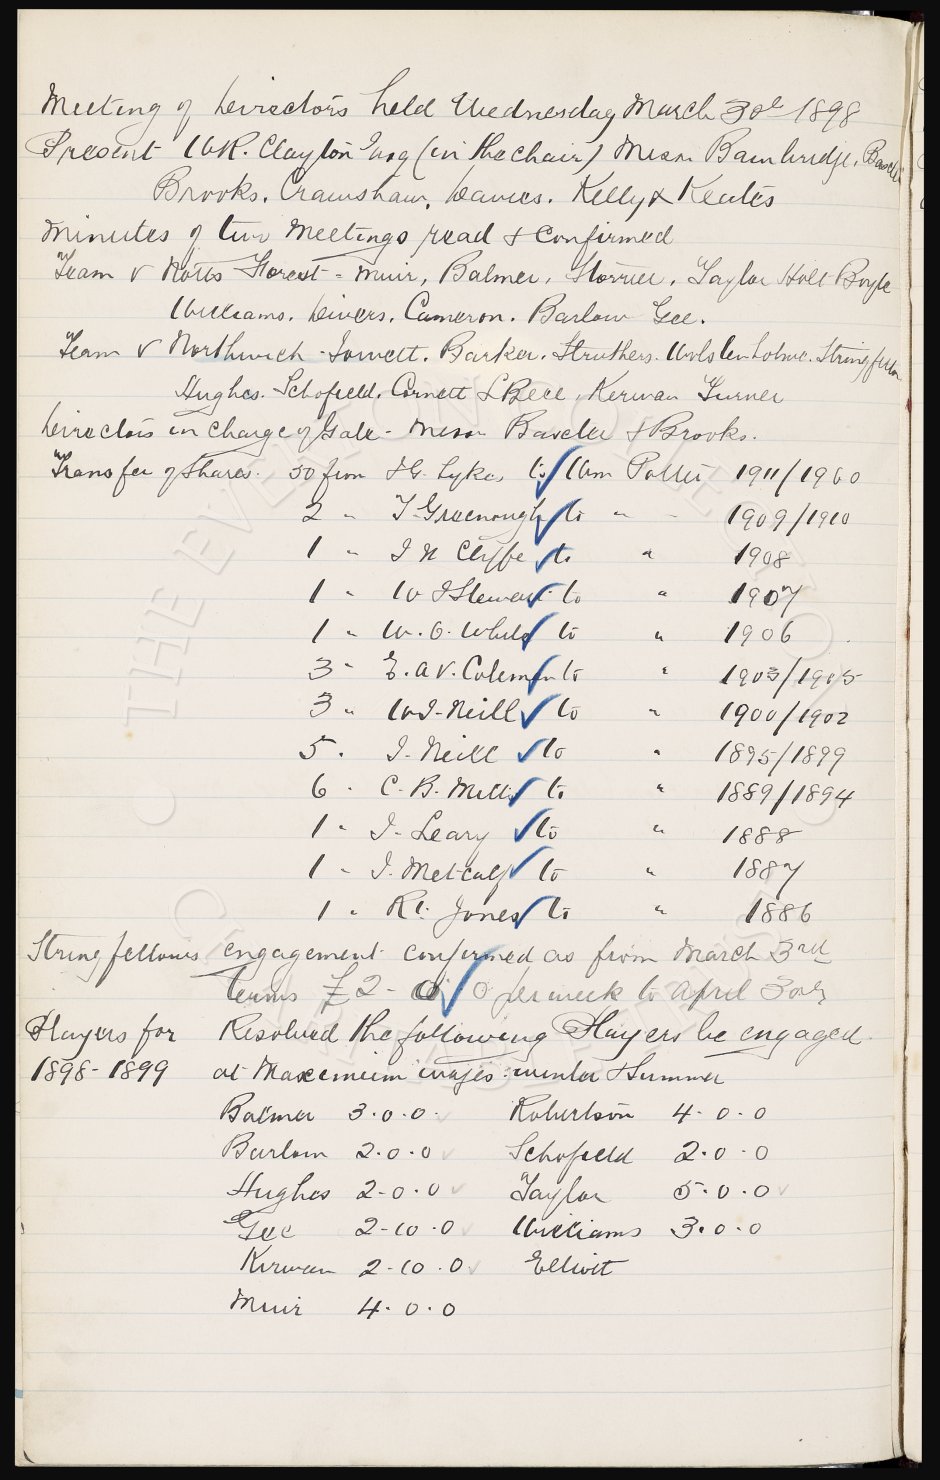 Meeting of Directors held Wednesday March 30th 1898
Present W.R. Clayton Esq (in the chair) Messrs Bainbridge, Baxter
Brooks. Crawshaw, Davies. Kelly & Keates
Minutes of two Meetings read & confirmed
Team v Notts Forest - Muir, Balmer, Storrier, Taylor Holt Boyle
Williams. Divers. Cameron. Barlow Gee.
Team v Northwich - Jowett. Barker. Struthers. Wolstenholme. Stringfellow
Hughes. Schofield. Cornett L Bell, Kirwan Turner
Directors in charge of Gate - Messrs Baxter & Brooks.
Transfer of Shares. 50 from H.G. Lyke to Wm 1911/1960
2 " T Greenough to " " 1909/1910
1 " J N Cliffe to " 1908
1 " W J Stewart to " 1907
1 " W. O. White to " 1906
3 " E. A V. Coleman to " 1903/1905
3 " W J. Neill to " 1900/1902
5 " J. Neill to " 1895/1899
6 " C. B. Mills to " 1889/1894
1 " J. Leary to " 1888
1 " J. Metcalf to " 1887
1 " Rt. Jones to " 1886
Stringfellows engagement confirmed as from March 3rd
terms £2-0-0 per week to April 30th
Players for Resolved the following Players be engaged
1898-1899 at Maximum wages winter & Summer
Balmer 3.0.0. Robertson 4.0.0
Barlow 2.0.0 Schofield 2.0.0
Hughes 2.0.0 Taylor 5.0.0
Gee 2-10.0 Williams 3.0.0
Kirwan 2-10.0 Elliott
Muir 4.0.0
THE EVERTON COLLECTION